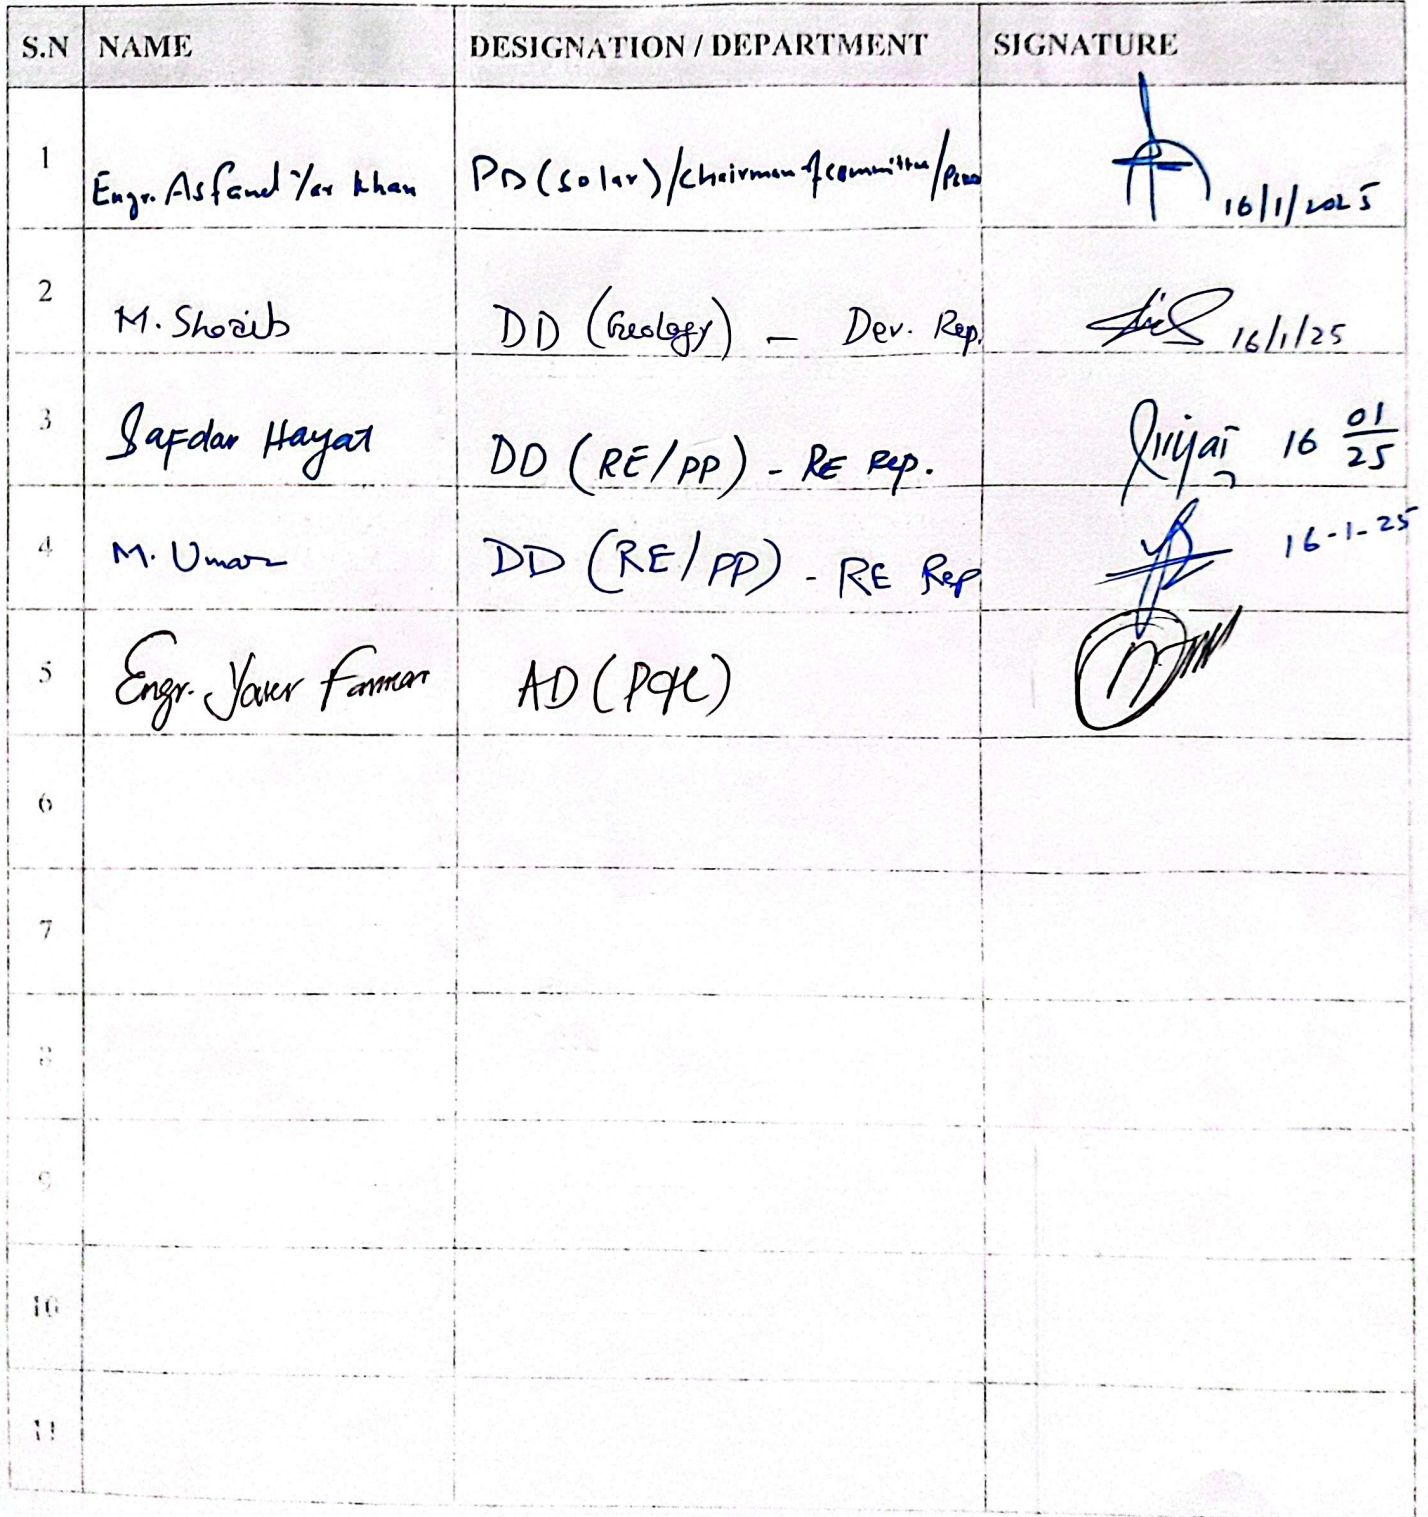 S.N NAME DESIGNATION / DEPARTMENT SIGNATURE
1 Engr. Asfand Yar Khan PD (Solar)/Chairman of committee/ 16/1/2025
2 M. Shoaib DD (Geology) - Dev. Rep. 16/1/25
3 Safdar Hayat DD (RE/PP) - RE Rep. 16 01/25
4 M. Umar DD (RE/PP) - RE Rep 16-1-25
5 Engr. Yaser AD
6
7
8
9
10
11